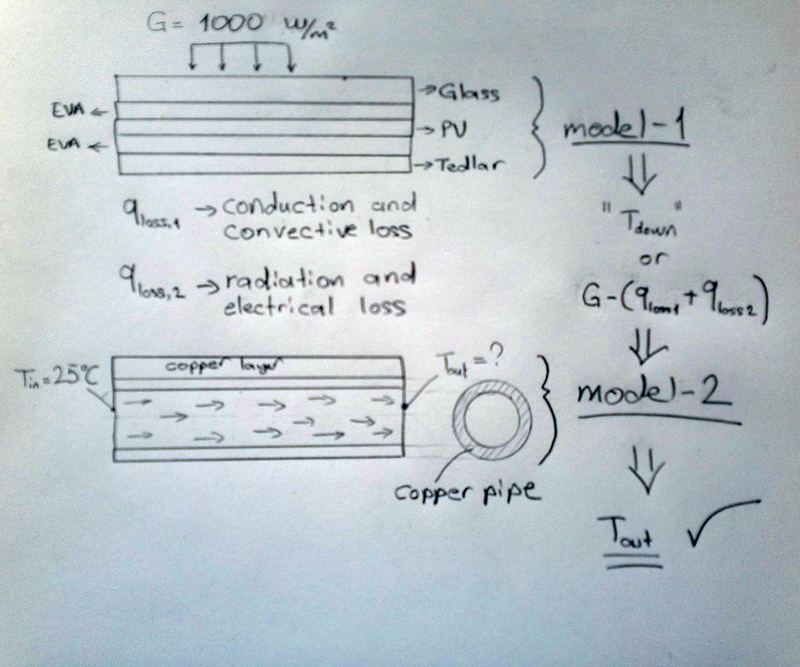 G = 1000 W/m²
EVA
EVA
Glass
PV
Tedlar
model-1
q loss,1 → conduction and
convective loss
q loss,2 → radiation and
electrical loss
"Tdown"
or
G-(q loss1 + q loss2)
model-2
Tin = 25°C
copper layer
Tout = ?
copper pipe
Tout ✓